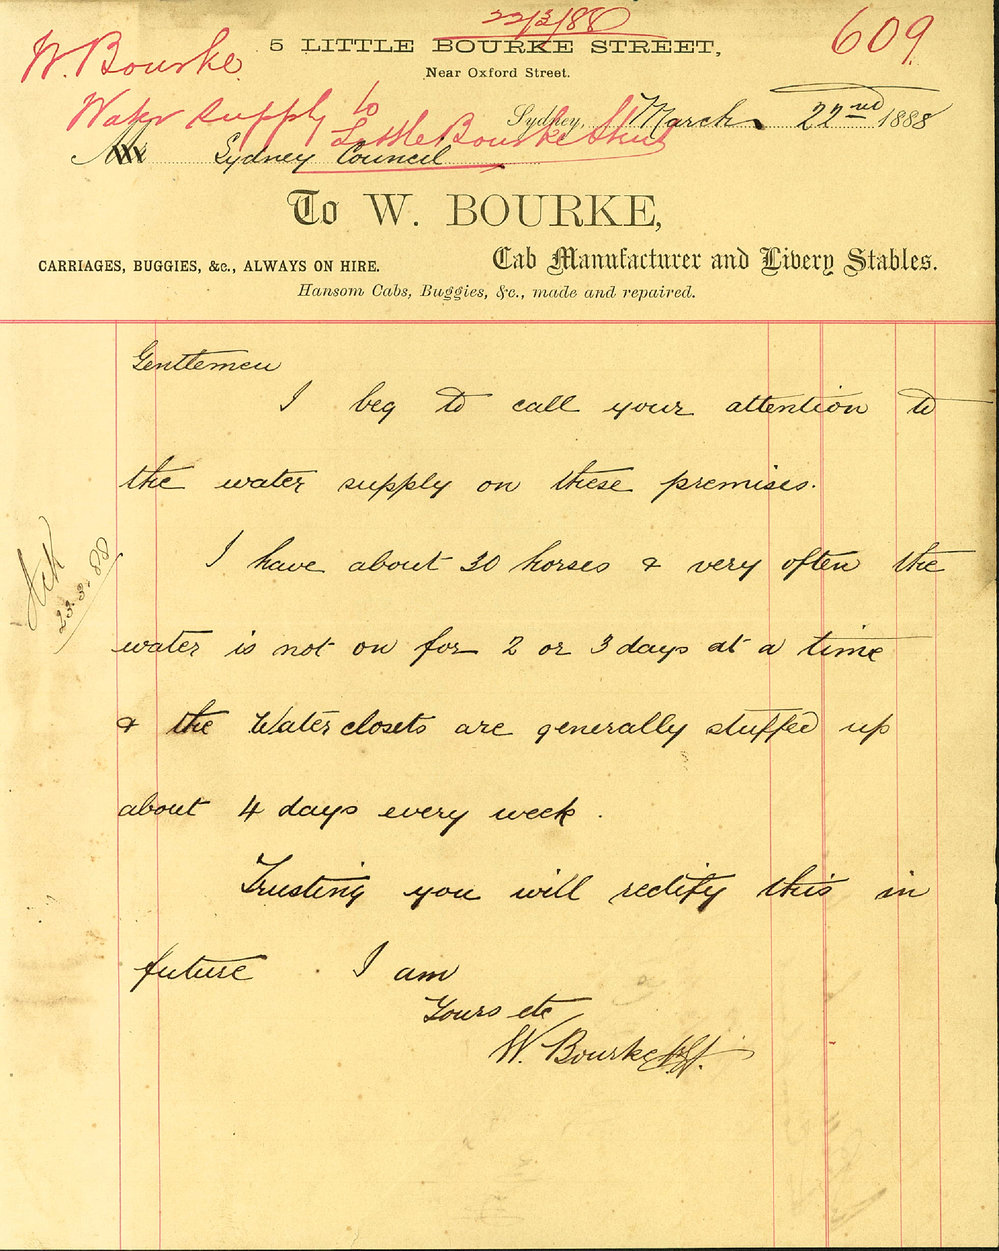 22/3/88
609
W. Bourke
5 LITTLE BOURKE STREET,
Near Oxford Street.
Water supply to
Little Bourke Street
Sydney, March 22nd 1888
Sydney Council
To W. BOURKE,
CARRIAGES, BUGGIES, &c., ALWAYS ON HIRE.
Cab Manufacturer and Livery Stables.
Hansom Cabs, Buggies, &c., made and repaired.
Gentlemen
I beg to call your attention to
the water supply on these premises.
I have about 30 horses & very often the
water is not on for 2 or 3 days at a time
& the Water closets are generally stuffed up
about 4 days every week.
Trusting you will rectify this in
future I am
Yours etc
W. Bourke
Ack
23.3.88